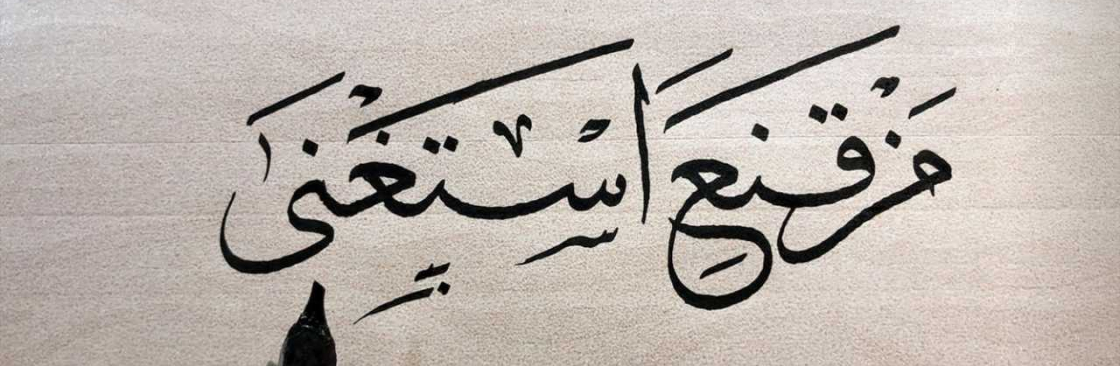 مَنْ قَنِعَ اسْتَغْنَى